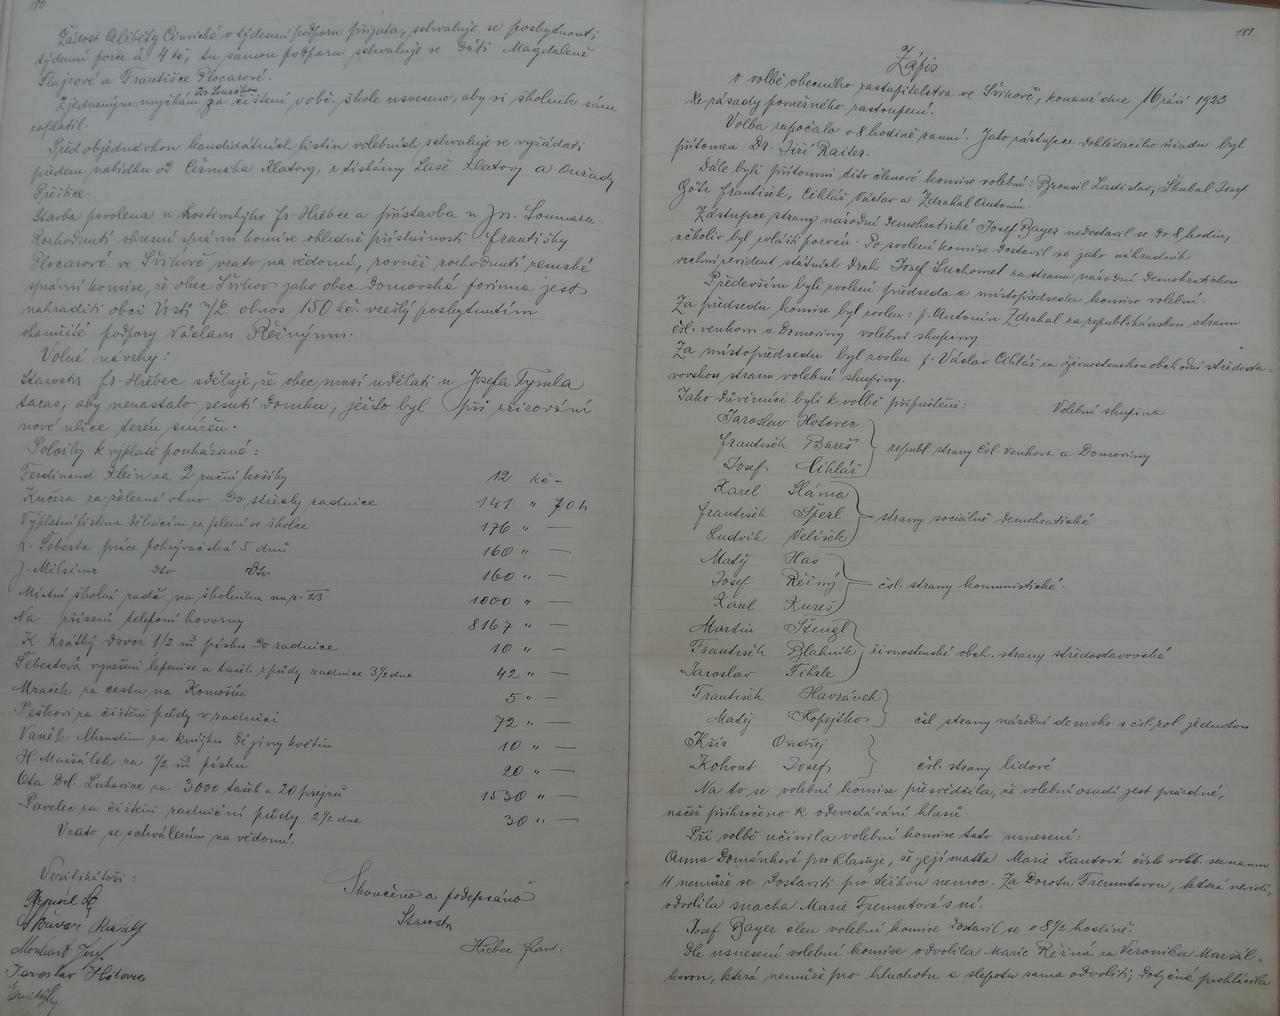 180
Žádost Alžběty Civické o týdenní podporu přijata, schvaluje se poskytnouti
týdenní porce á 4 kč, tu samou podporu schvaluje se dáti Magdaleně
Šlajsové a Františce Plocarové.
Zjednaným myčkám za čištění v obě. škole usneseno, aby si školník sám
zaplatil.
Před objednávkou kandidátních listin volebních schvaluje se vyžádati
předem nabídku od Čermáka Klatovy, z tiskárny Klatovy a
Přeštice.
Stavba povolena u Fr. Hřebce a přístavba u Jos. Soumara.
Rozhodnutí okresní správní komise ohledně příslušnosti Františky
Plocarové ve Švihově vzato na vědomí, rovněž rozhodnutí zemské
správní komise, že obec Švihov jako obec domovská povinna jest
nahraditi obci Ústí n/L. obnos 150 kč. vzešlý poskytnutím
okamžité podpory Václavu Řežným.
Volné návrhy:
Starosta fr. Hřebec sděluje, že obec musí udělati u Josefa Tymla
taras, aby nenastalo sesutí domku, ježto byl při zřizování
nové ulice terén snížen.
Položky k výplatě poukázané:
Ferdinand Klein za 2 ruční košíky 12 kč –
Kučera za železné okno do střechy radnice 141 „ 70 h
Výplatní listina dělnicím za plení ve školce 176 „ —
Šebesta práce pokrývačská 5 dnů 160 „ —
J. Milsimr dto dto 160 „ —
Místní školní radě na školníka na r. 23 1000 „ —
Na přízení telefoní hovorny 8167 „ —
K Krátký dovoz 1/2 m³ písku do radnice 10 „ —
Šebestová vynešení lepenice a tašek z půdy radnice 3 1/2 dne 42 „ —
Mraček za cestu na Komošín 5 „ —
Peškovi za čištění půdy v radnici 72 „ —
Vaněk za knížku dějiny květin 10 „ —
H. Maršálek za 1/2 m³ písku 20 „ —
Ota Dol. Lukavice za 3000 tašek a 20 prejzů 1530 „ —
Pavelec za čištění radniční půdy 2 1/2 dne 30 „ —
Vzato se schválením na vědomí.
Verifikátoři:
Skončeno a podepsáno
Starosta
Hřebec Frant.
Rudolf
Josef
Jaroslav Hotovec
181
Zápis
o volbě obecního zastupitelstva ve Švihově, konané dne 16 září 1923
dle zásady poměrného zastoupení.
Volba započala o 8 hodině ranní. Jako zástupce dohlédacího úřadu byl
přítomen Dr. Jiří Raiter.
Dále byli přítomni tito členové komise volební: Brousil Ladislav, Škubal Josef
Götz František, Cihlář Václav a Zdrahal Antonín.
Zástupce strany národní demokratické Josef Bayer nedostavil se do 8 hodin,
ačkoliv byl zvláště pozván. Po svolení komise dostavil se jako náhradník
vrchní evident státních drah Josef Suchomel za stranu národní demokratickou
Především byli zvoleni předseda a místopředseda komise volební.
Za předsedu komise byl zvolen: p. Antonín Zdrahal za republikánskou stranu
čsl. venkova a Domoviny volební skupiny
Za místopředsedu byl zvolen p. Václav Cihlář za živnostenskou obchodní středosta-
vovskou stranu volební skupiny.
Jako důvěrníci byli k volbě připuštěni: Volební skupina
Jaroslav Hotovec
František Bareš republ strany čsl. venkova a Domoviny
Josef Cihlář
Karel Sláma
František Šperl strany sociálně demokratické
Ludvík Velíšek
Matěj Has
Josef Řežný čsl. strany komunistické.
Karel Kureš
Martin Štengl
František Blahník živnostenské obch. strany středostavovské
Jaroslav Fihrle
František Havránek
Matěj Kopejtko čsl. strany národní demokr. s čsl. rol. jednotou
Kšír Ondřej
Kohout Josef čsl. strany lidové
Na to se volební komise přesvědčila, že volební osudí jest prázdné,
načež přikročeno k odevzdávání hlasů.
Při volbě učinila volební komise toto usnesení:
Anna Dománková prohlašuje, že její matka Marie Kantová číslo volb. seznamu
11 nemůže se dostaviti pro těžkou nemoc. Za Dorotu Fremutovou, která nevidí,
odvolila snacha Marie Fremutová s ní.
Josef Bayer člen volební komise dostavil se o 8 1/2 hodině.
Dle usnesení volební komise odvolila Marie Řežná za Veroniku Maršál-
kovou, která nemůže pro hluchotu a slepotu sama odvoliti; dotyčná prohlásila